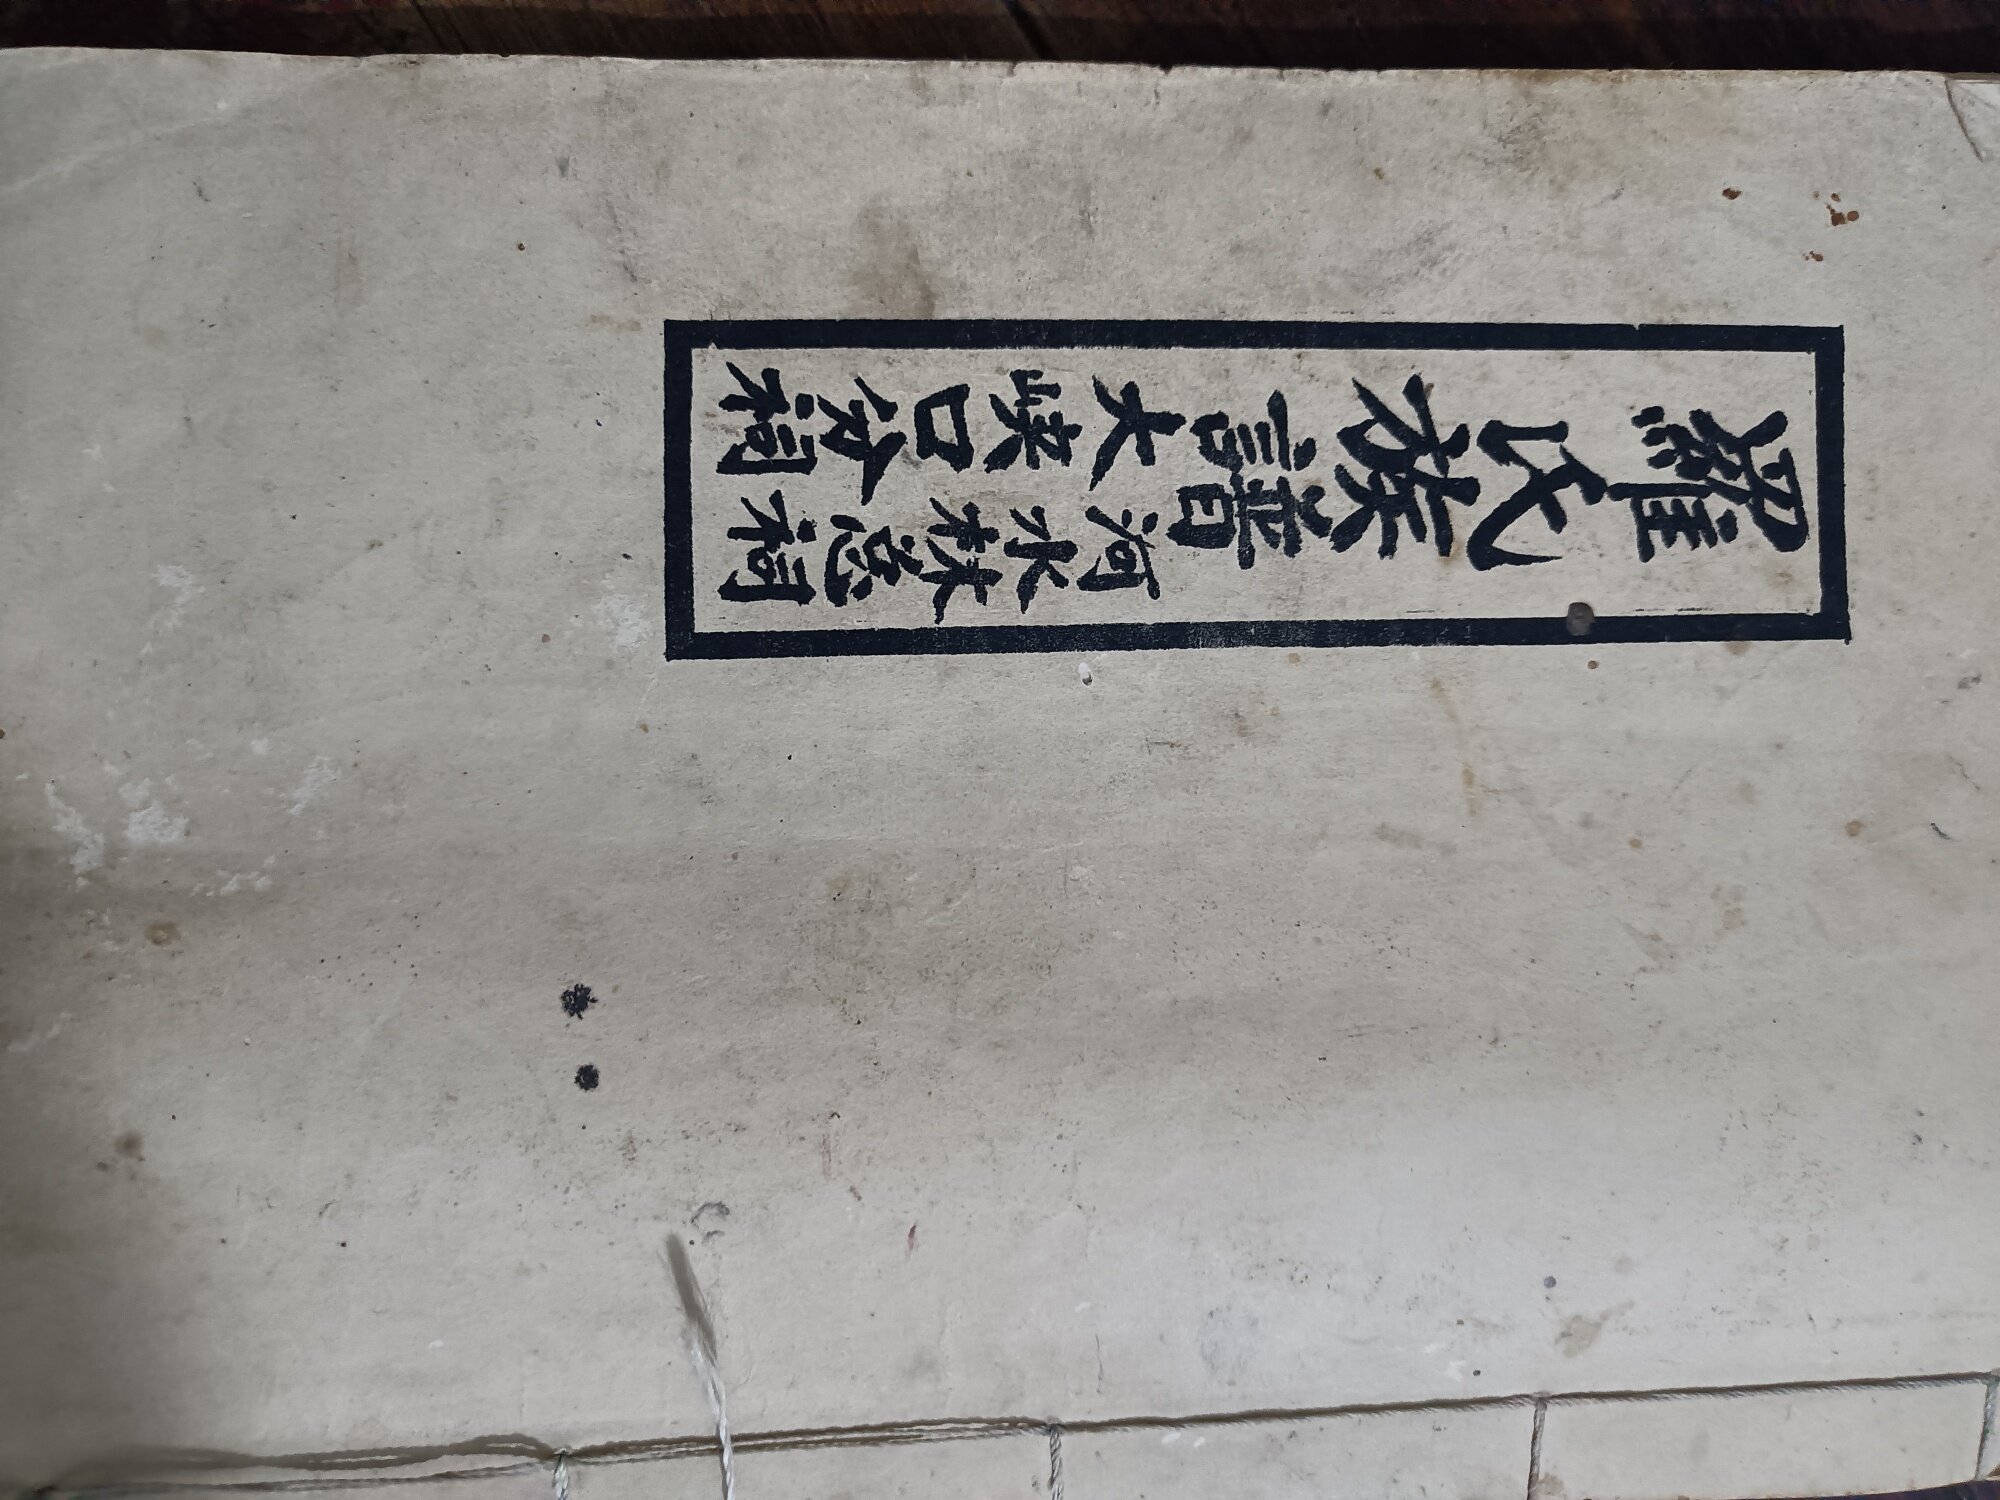 羅氏族譜
河水林总祠
大峡口分祠